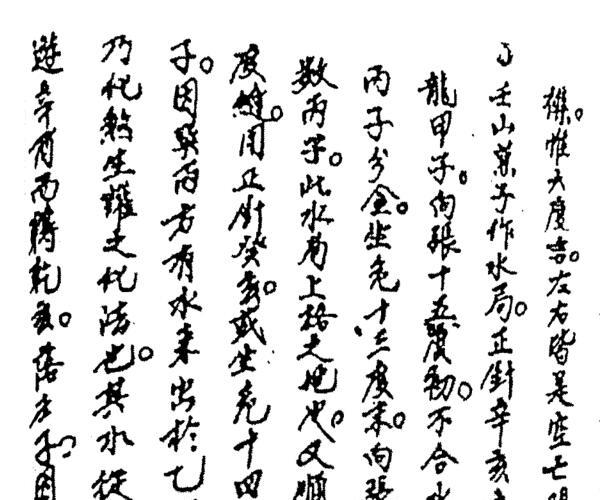 樑。惟六度吉。左右皆是空亡
壬山葉子作水局。正針辛亥
龍甲子。向張十五度初。不合水
丙子分金。坐危十三度末。向張
數丙子。此水局上格之地也。又順
度縫。用正針癸亥。或坐危十四
子。因巽丙方有水来出於乙
乃化煞生權之化法也。其水從
遊辛有而轉乾亥。落